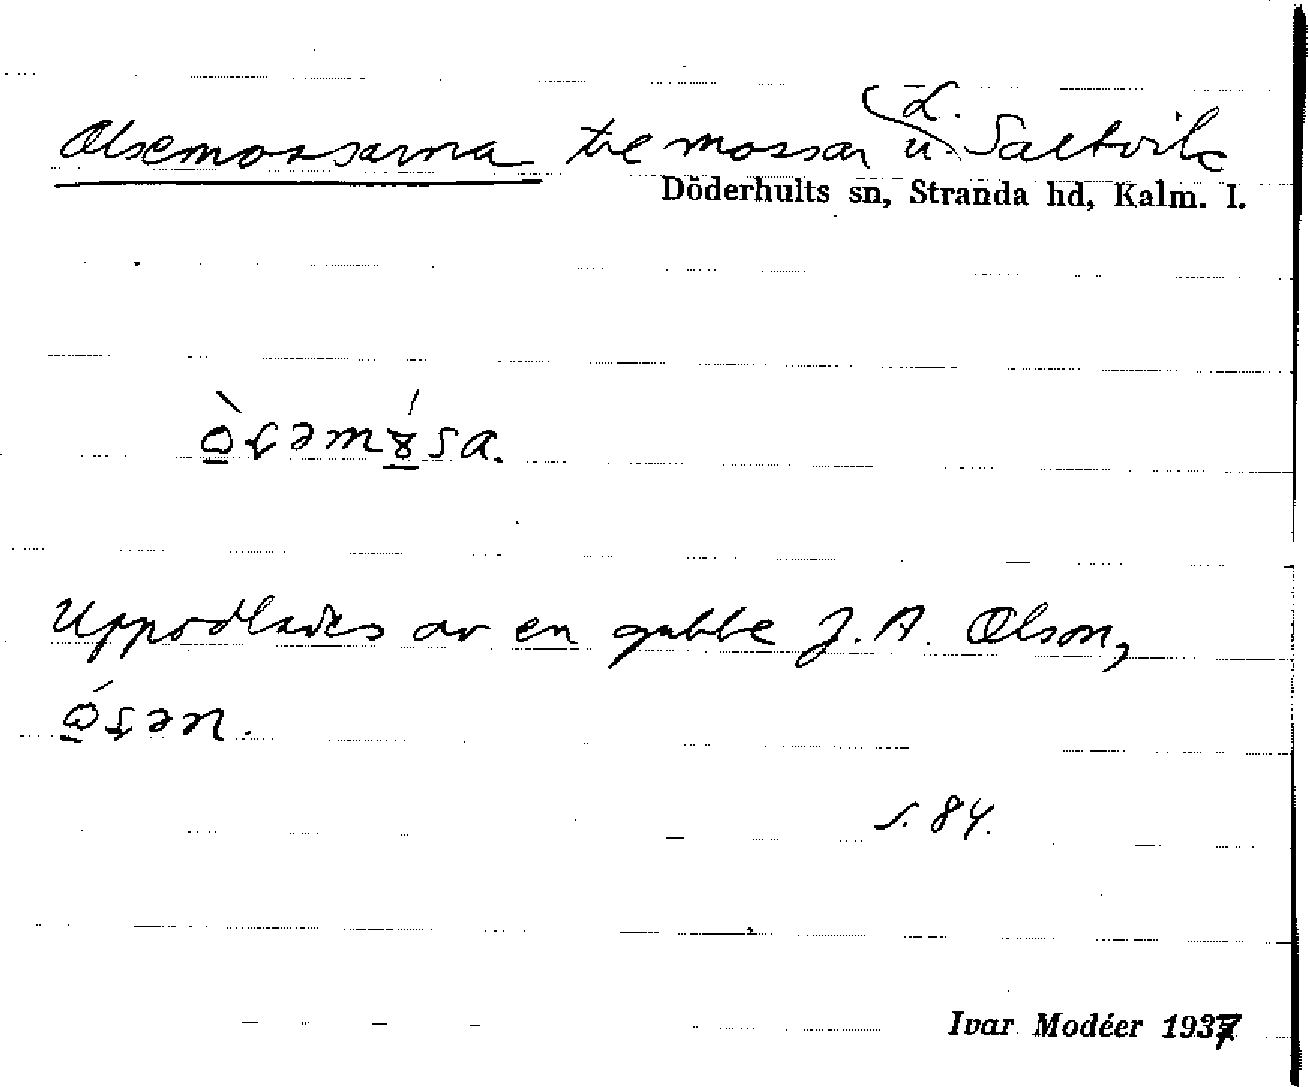 Olsemossarna tre mossar u. L. Saltvik
Döderhults sn, Stranda hd, Kalm. l.
Uppodlades av en gubbe J. A. Olson,
s. 84.
Ivar Modéer 1937